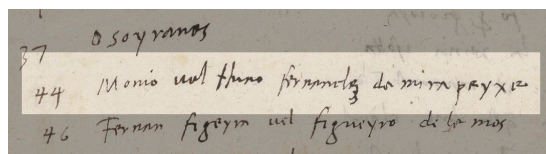 o soyranes
37
44 Monio vel Nuno fernandez de mirapeyxe
46 Fernan figeyra vel figueyro de lemos